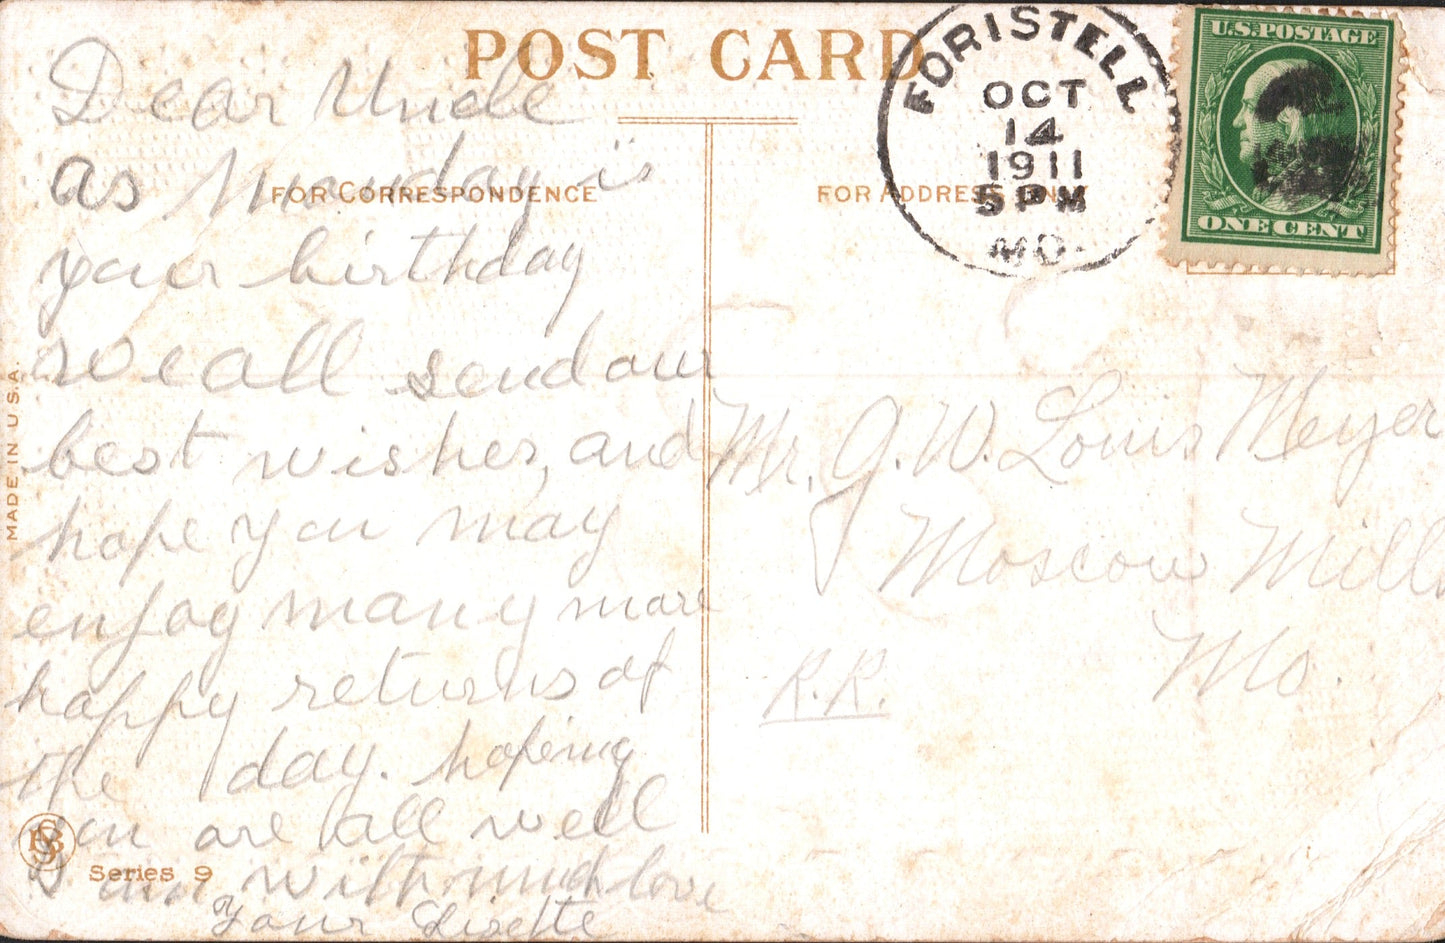 POST CARD
FOR CORRESPONDENCE
FOR ADDRESS ON
MADE IN U.S.A.
Series 9
FORISTELL
OCT
14
1911
5 PM
MO.
U.S. POSTAGE
ONE CENT
Dear Uncle
as Monday is
your birthday
we all send our
best wishes, and
hope you may
enjoy many more
happy returns of
the day. hoping
you are all well
I am with much love
Your Lisette
Mr. G. W. Louis Meyer
Moscow Mills
Mo.
R.R.